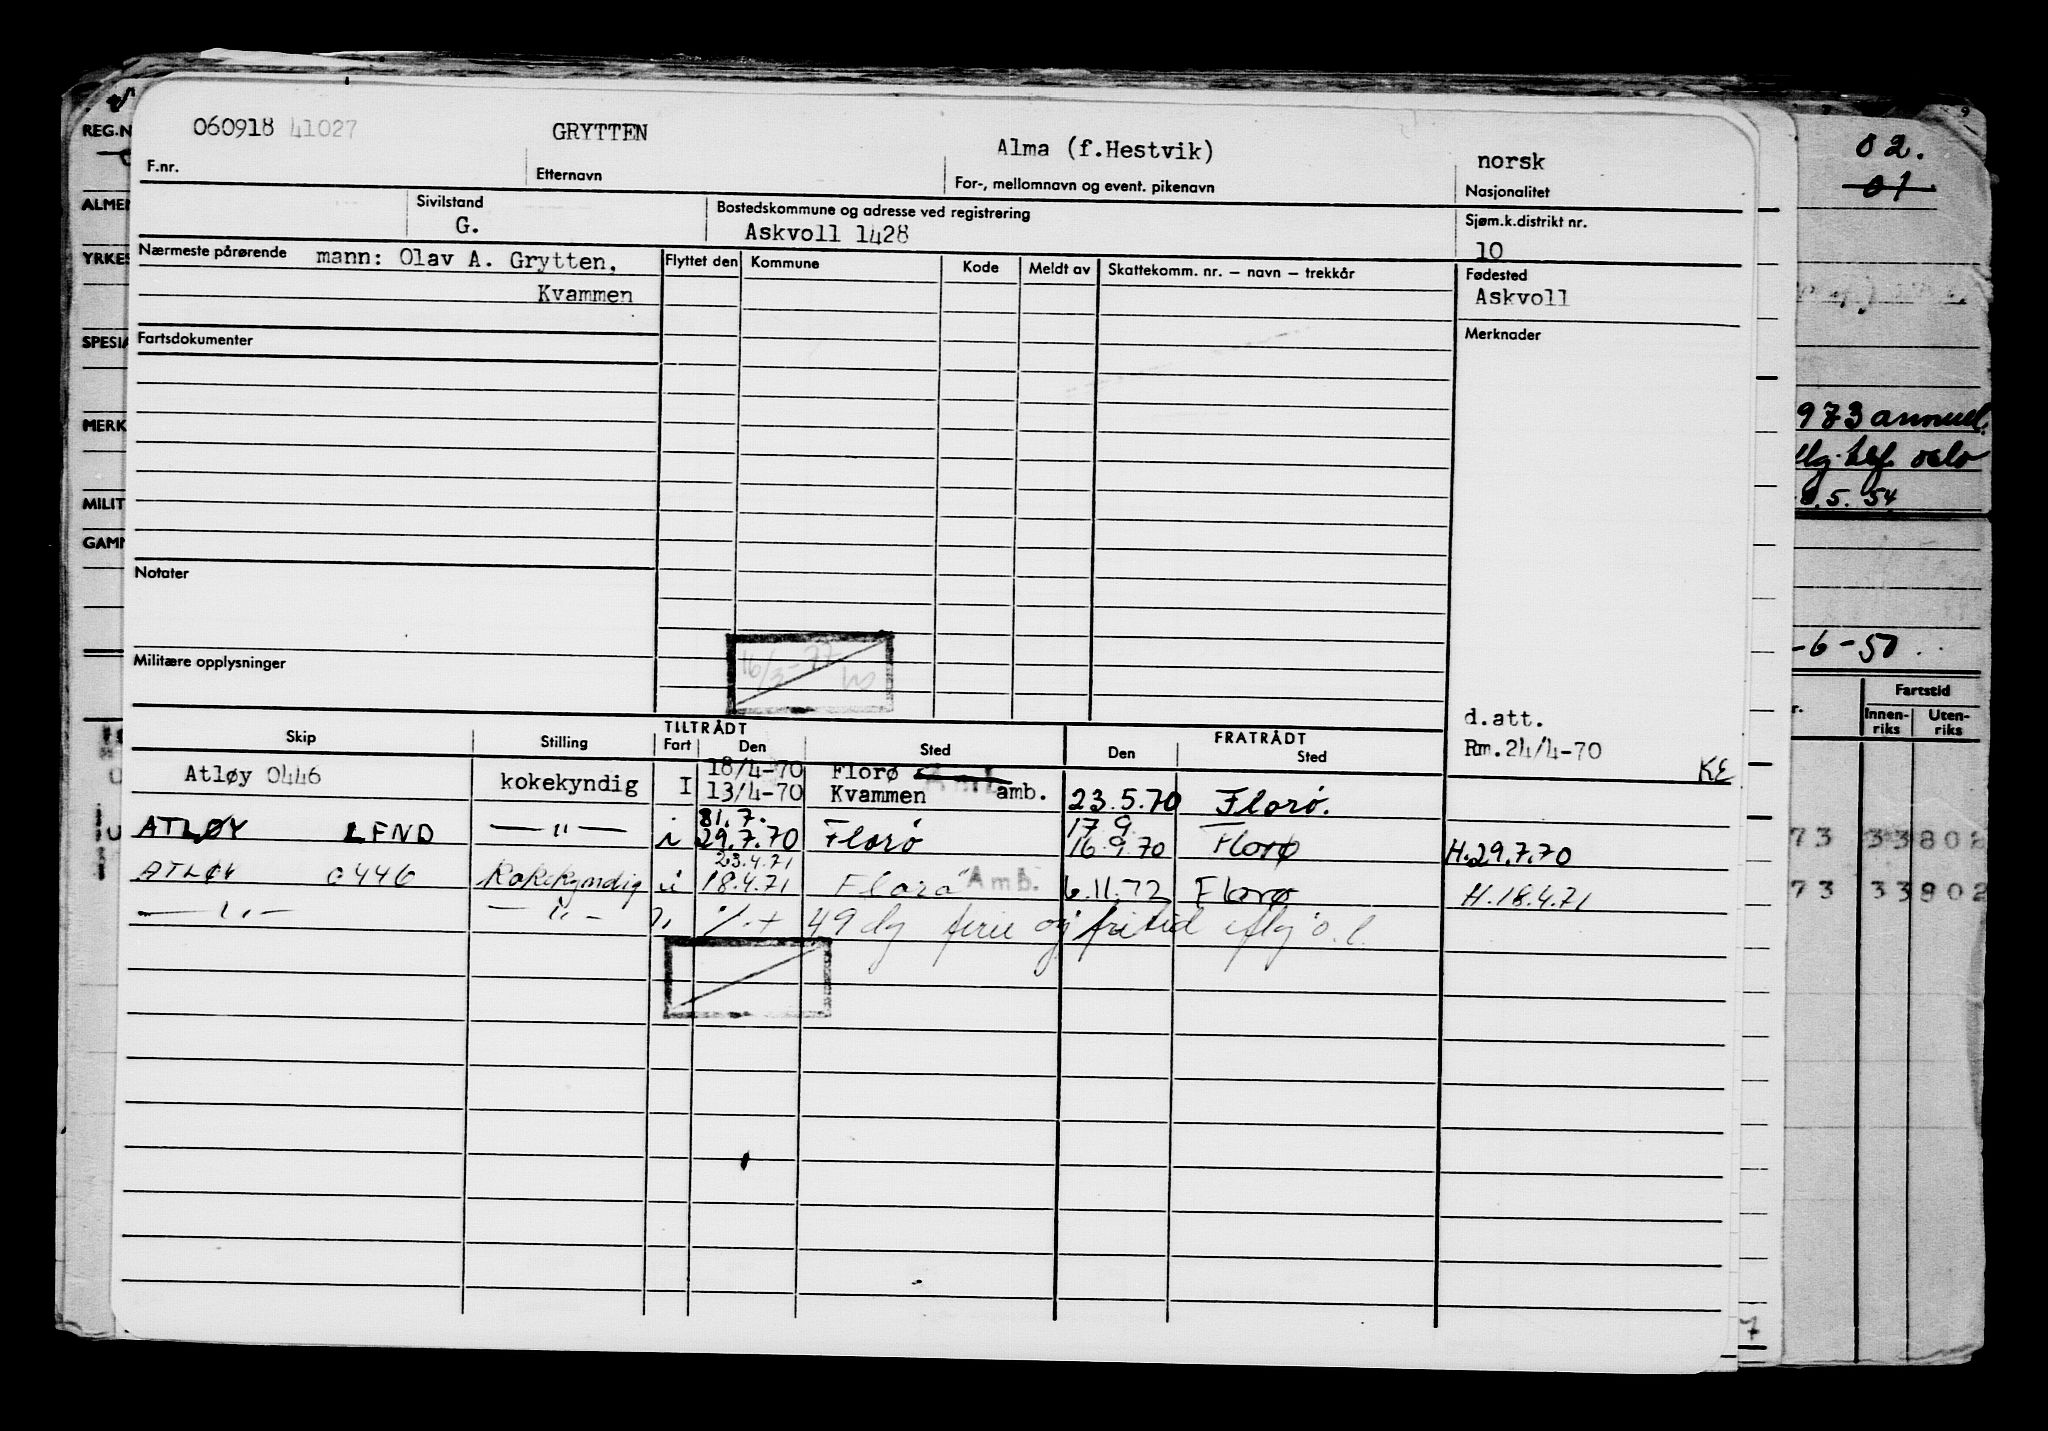 060918 41027 GRYTTEN Alma (f.Hestvik) norsk
F.nr. Etternavn For-, mellomnavn og event. pikenavn Nasjonalitet
Sivilstand Bostedskommune og adresse ved registrering Sjøm.k.distrikt nr.
G. Askvoll 1428 10
Nærmeste pårørende mann: Olav A. Grytten, Flyttet den Kommune Kode Meldt av Skattekomm. nr. – navn – trekkår Fødested
Kvammen Askvoll
Fartsdokumenter Merknader
Notater
Militære opplysninger
16/3-77
d.att.
Rm.24/4-70 KE
TILTRÅDT FRATRÅDT
Skip Stilling Fart Den Sted Den Sted
18/4-70 Florø
Atløy 0446 kokekyndig I 13/4-70 Kvammen amb. 23.5.70 Florø.
31.7. 17 9
ATLØY LFND —"— i 29.7.70 Florø 16.9.70 Florø H.29.7.70
23.4.71
ATLØY 0446 Kokekyndig i 18.4.71 Florø Amb. 6.11.72 Florø H.18.4.71
—"— —"— " %.+ 49 dg ferie og fritid iflg o.l.
REG.N
ALMEN
YRKES
SPESIA
MERK
MILIT
GAMM
02.
01
973 annul.
flg tlf. oslo
.5.54
-6-50
r. Fartstid
Innen-riks Uten-riks
73 33802
73 33802
7